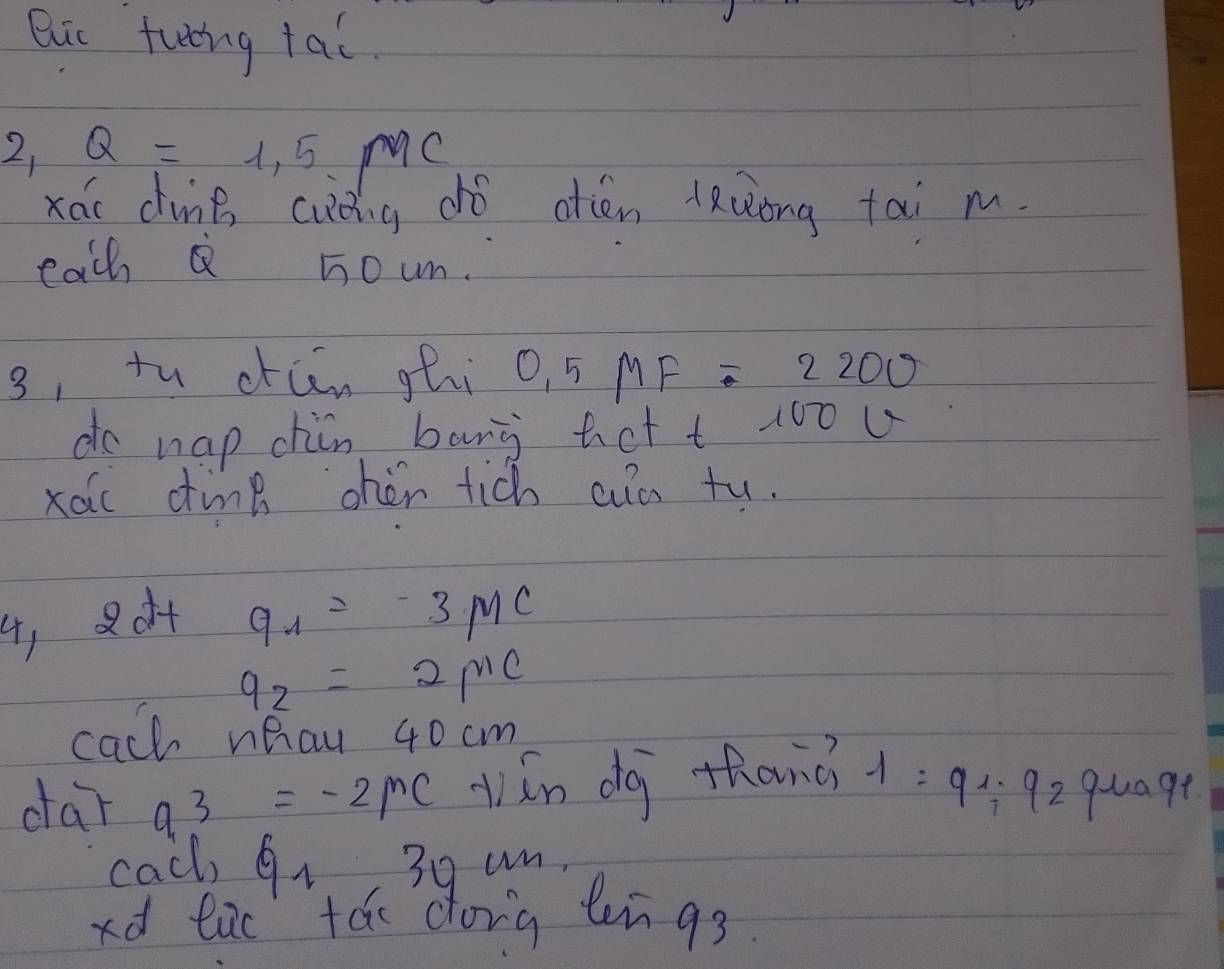 lực tương tác.
2, Q = 1,5 μC
xác định cường độ điện trường tại M.
cách Q 50 cm.
3, tụ điện ghi 0,5 μF - 220V
đc nạp điện bằng hđt 100 V
xác định điện tích của tụ.
4, 2 đt q1 = -3 μC
q2 = 2 μC
cách nhau 40 cm
đặt q3 = -2 μC trên đg thẳng q1; q2
cách q1 30 cm.
xđ lực tác động lên q3.